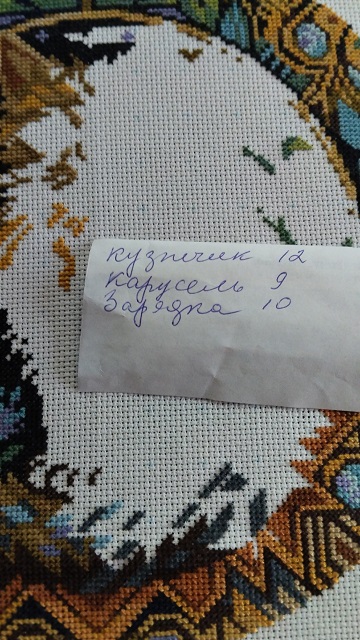 кузнечик 12
Карусель 9
Зарядка 10